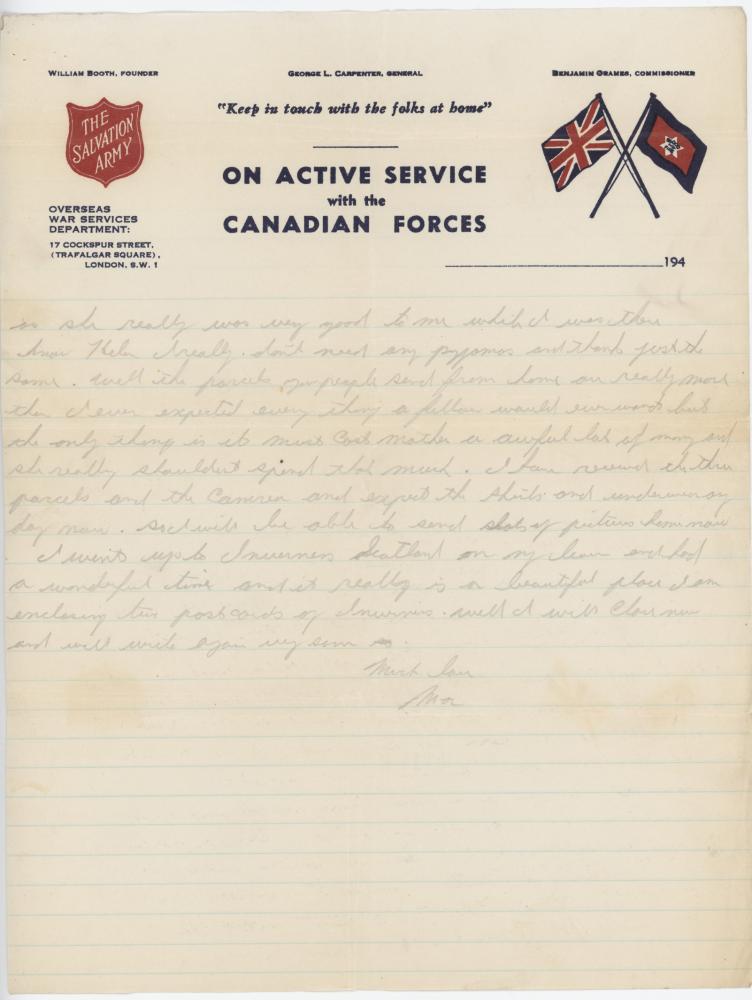 WILLIAM BOOTH, FOUNDER
GEORGE L. CARPENTER, GENERAL
BENJAMIN ORAMES, COMMISSIONER
THE
SALVATION
ARMY
"Keep in touch with the folks at home"
ON ACTIVE SERVICE
with the
CANADIAN FORCES
OVERSEAS
WAR SERVICES
DEPARTMENT:
17 COCKSPUR STREET,
(TRAFALGAR SQUARE),
LONDON, S.W. 1
194
as she really was very good to me while I was there
Helen I really don't need any pyjamas and thanks just the
same. well the parcels you people send from home are really more
then I ever expected every thing a fellow would ever want but
the only thing is it must cost mother a awful lot of money and
she really shouldn't spend that much. I have received the three
parcels and the camera and expect the shirts and underwear any
day now. So I will be able to send lots of pictures home now
I went up to Inverness Scotland on my leave and had
a wonderful time and it really is a beautiful place I am
enclosing two postcards of Inverness. well I will close now
and will write again very soon
Much love
Mor